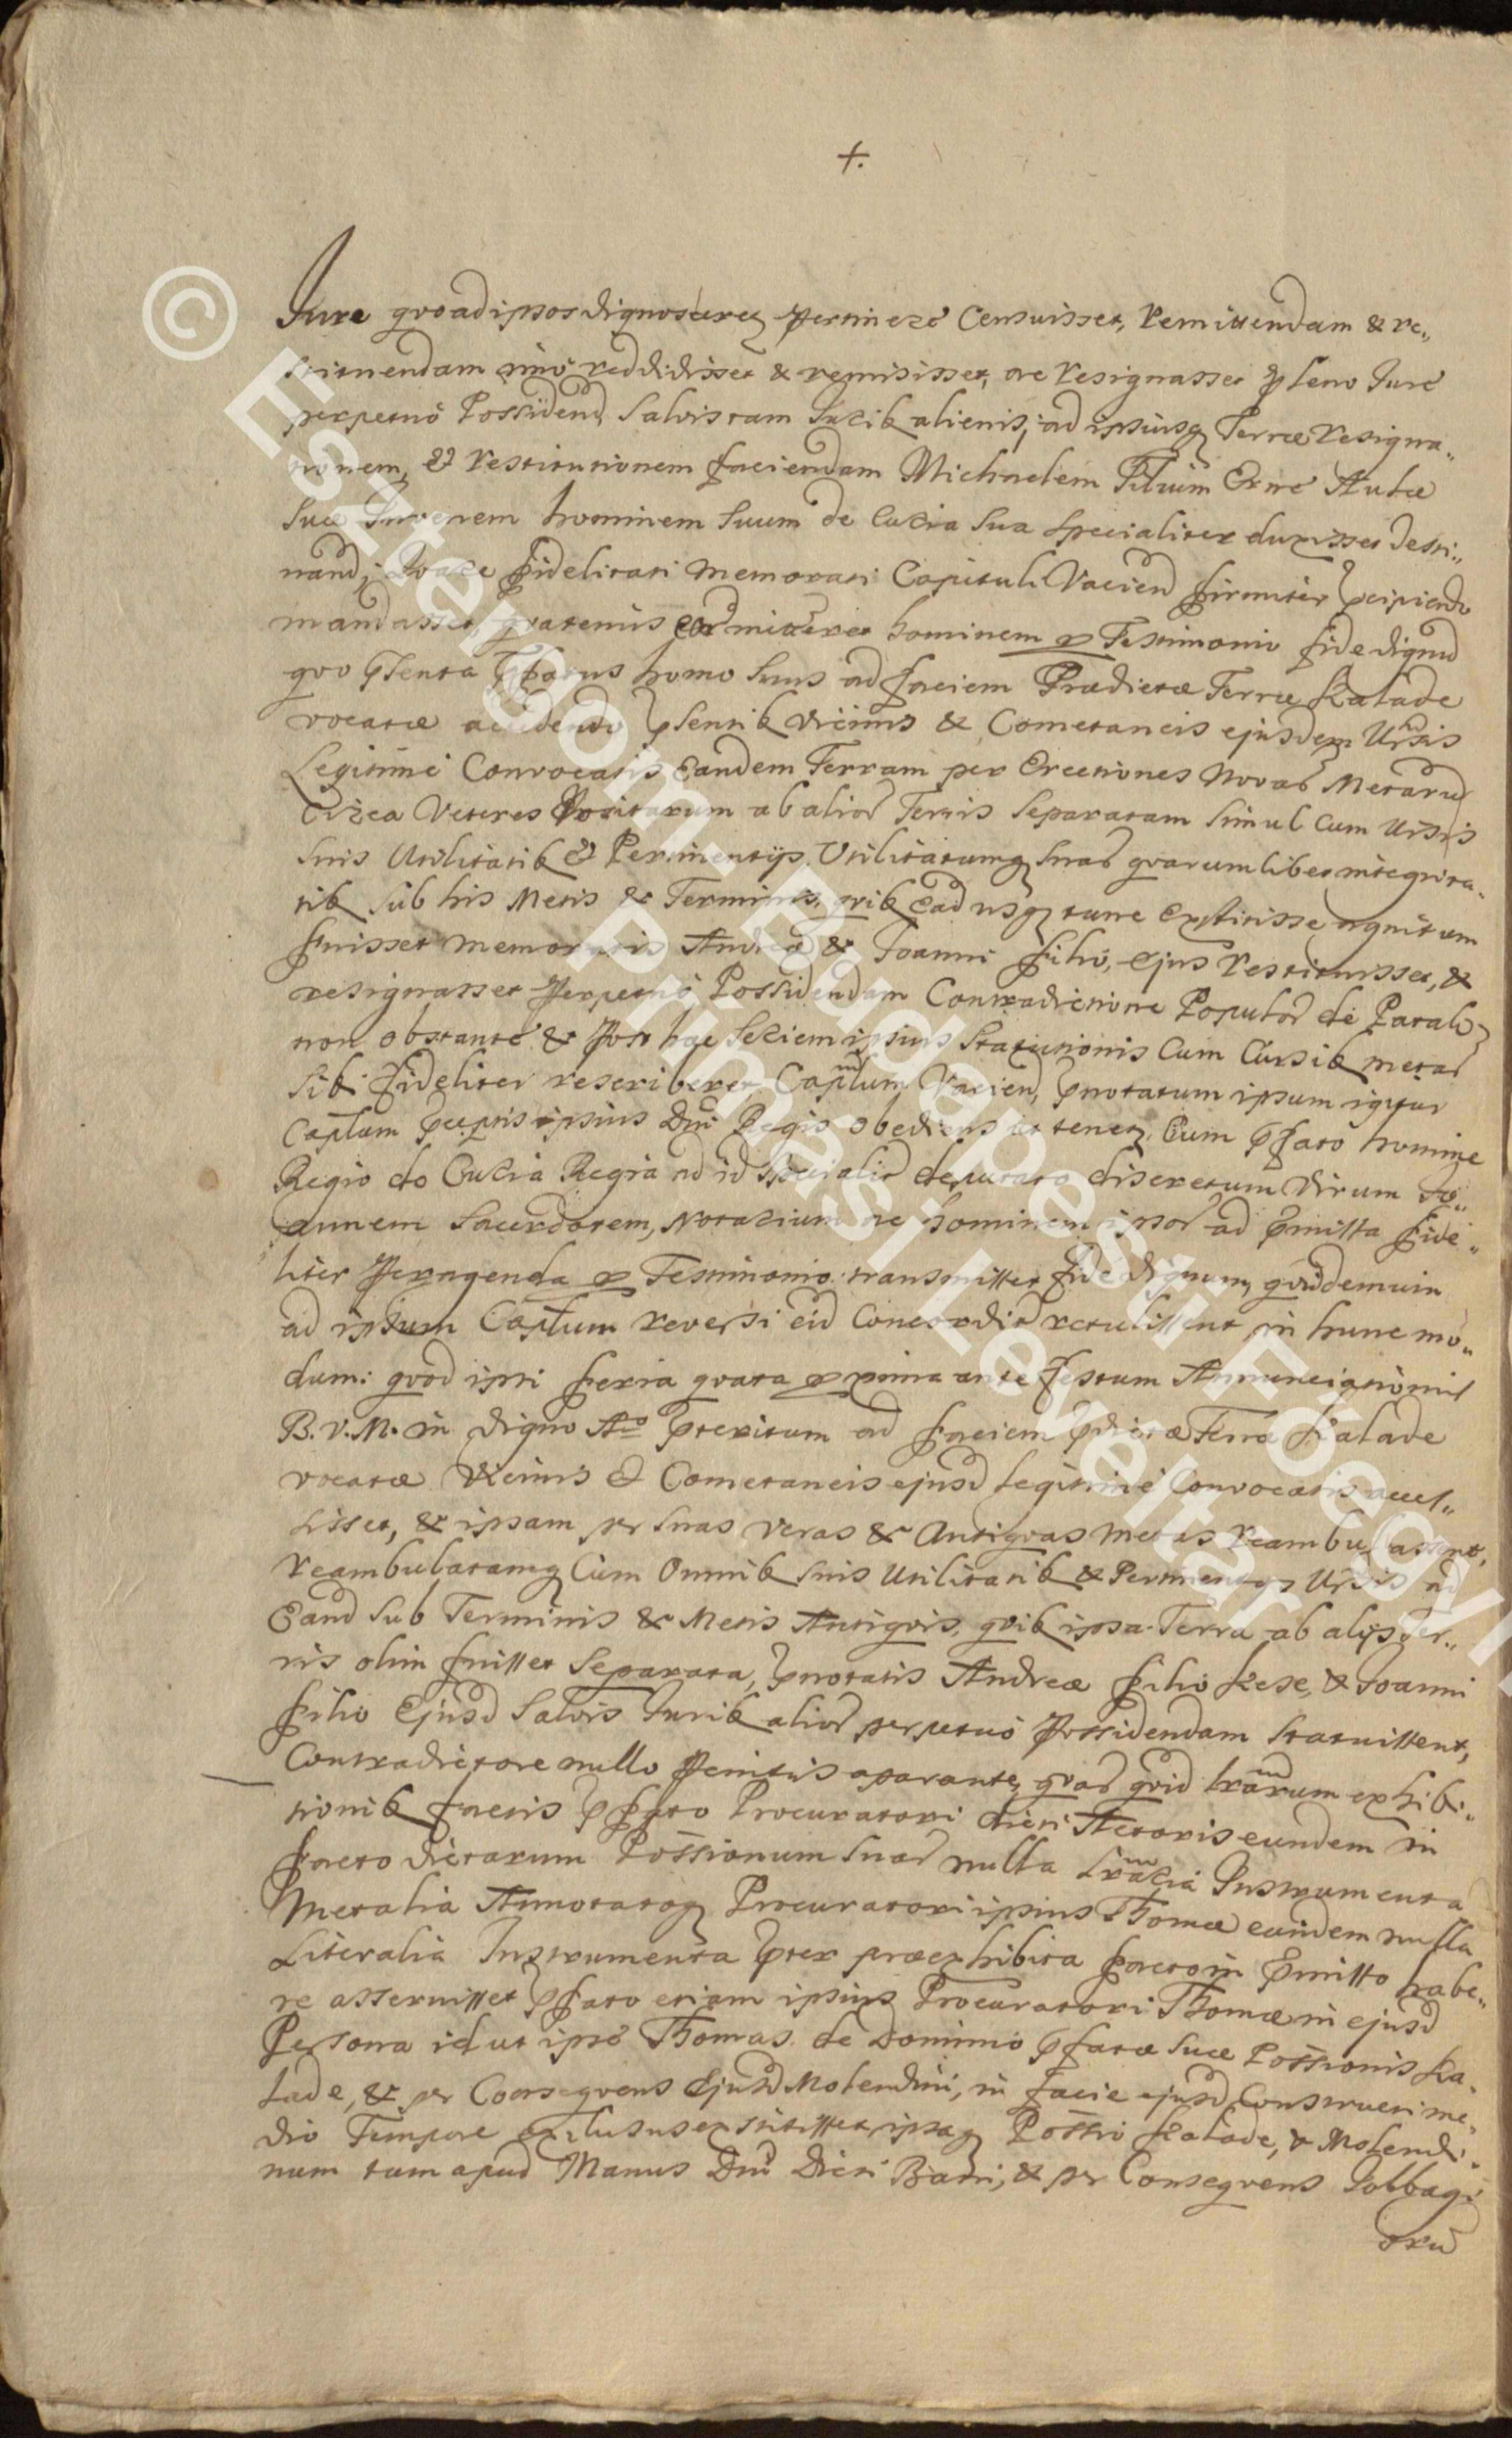 +.
Jure quoad ipsos dignosceretq pertinere Censuisset, remittendam & re„
stituendam imo reddidisset & remisisset, ac resignasset pleno Jure
perpetuo Possidend, Salvis tam Jurib alienis, ad ipsiusq Terræ resigna„
tionem, & restitutionem faciendam Michaelem Filium Erne Aulæ
Suæ Juvenem hominem Suum de Curia Sua specialiter duxisset desti„
nand; Quare fidelitati memorati Capituli Vacien firmiter pcipiendo
mandasset, quatenus mitteret hominem p Testimonio fide dignu
quo psente pfatus homo Suus ad faciem Prædictæ Terræ Kalade
vocatæ accedendo psentib vicinis & Cometaneis ejusdem Ursis
Legitime Convocatis Eandem Terram per Erectiones Novas Metaru
Circa Veteres Positarum ab alior Terris Separatam Simul Cum Ursis
Suis Utilitatib & Pertinentijs, Utilitatumq Suar quarumlibet integrita„
tib Sub his Metis & Terminis, quib Ead usq tunc Exstitisse agnitum
fuisset memoratis Andreæ & Joanni filio, ejus restituisset, &
resignasset Perpetuo Possidendam Contradictione Populor de Patak
non obstante & Post hac Seriem ipsius Statutionis Cum Cursib metar
Sib fideliter rescriberet, Captum Vacien, pnotatum ipsum igitur
Captum pceptis ipsius Dni Regis obediens ut tenetq, Cum pfato homine
Regio de Curia Regia ad id specialir deputato discretum virum Jo„
annem Sacerdotem, Notarium ac hominem ipsor ad pmissa fide„
liter Peragenda p Testimonio transmisset fide dignum, qui demum
ad ipsum Captum reversi eid Concordir retulissent in hunc mo„
dum: quod ipsi feria quarta pxima ante festum Annunciationis
B. V. M. in digno Ao pteritum ad faciem pdictæ Terræ Kalade
vocatæ vicinis & Cometaneis ejusd legitime Convocatis acces„
sisset, & ipsam pr Suas veras & Antiquas metas reambulassent,
reambulatamq Cum Omnib Suis Utilitatib & Pertinentijs Ursis ad
Eand Sub Terminis & Metis Antiquis, quib ipsa Terra ab alijs Ter„
ris olim fuisset Separata, pnotatis Andreæ filio Kese, & Joanni
filio Ejusd Salvis Jurib alior perpetuo Possidendam Statuissent,
Contradictore nullo Penitus aparante, quar quid lrarum exhibi„
tionib factis pfato Procuratori dicti Actoris eundem in
facto dictarum Possionum Suar nulla Lralia Instrumenta
Metalia Annotatoq Procuratori ipsius Thomæ eundem nulla
Literalia Instrumenta pter præexhibita facto in pmisso habe„
re asseruisset pfato etiam ipsius Procuratori Thomæ in ejusd
Persona id ut ipse Thomas de Dominio pfatæ Suæ Possionis Ka„
lade, & pr Consequens Ejusd Molendini, in facie ejusd Constructi me„
dio Tempore exclusus exstitisset, ipsaq Possio Kalade, & Molendi„
num tum apud Manus Dni Dicti Bani, & pr Consequens Jobbagi„
oru
© Esztergom-Budapesti Főegyházmegye
Prímási Levéltár